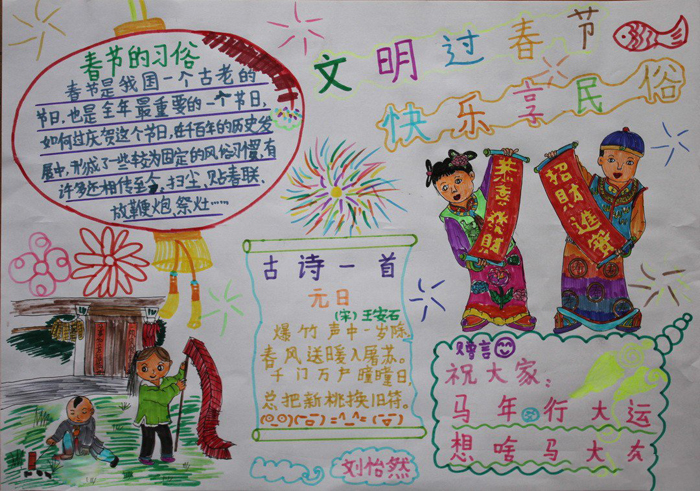 文明过春节
快乐享民俗
春节的习俗
春节是我国一个古老的
节日，也是全年最重要的一个节日，
如何过庆贺这个节日，在千百年的历史发
展中，形成了一些较为固定的风俗习惯，有
许多还相传至今，扫尘、贴春联、
放鞭炮，祭灶……
恭喜發財
招財進寳
古诗一首
元日
(宋)王安石
爆竹声中一岁除，
春风送暖入屠苏。
千门万户曈曈日，
总把新桃换旧符。
赠言
祝大家：
马年行大运
想啥马大友
刘怡然